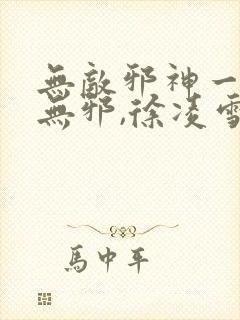 無敵邪神一
無邪,徐凌雪
馬中平